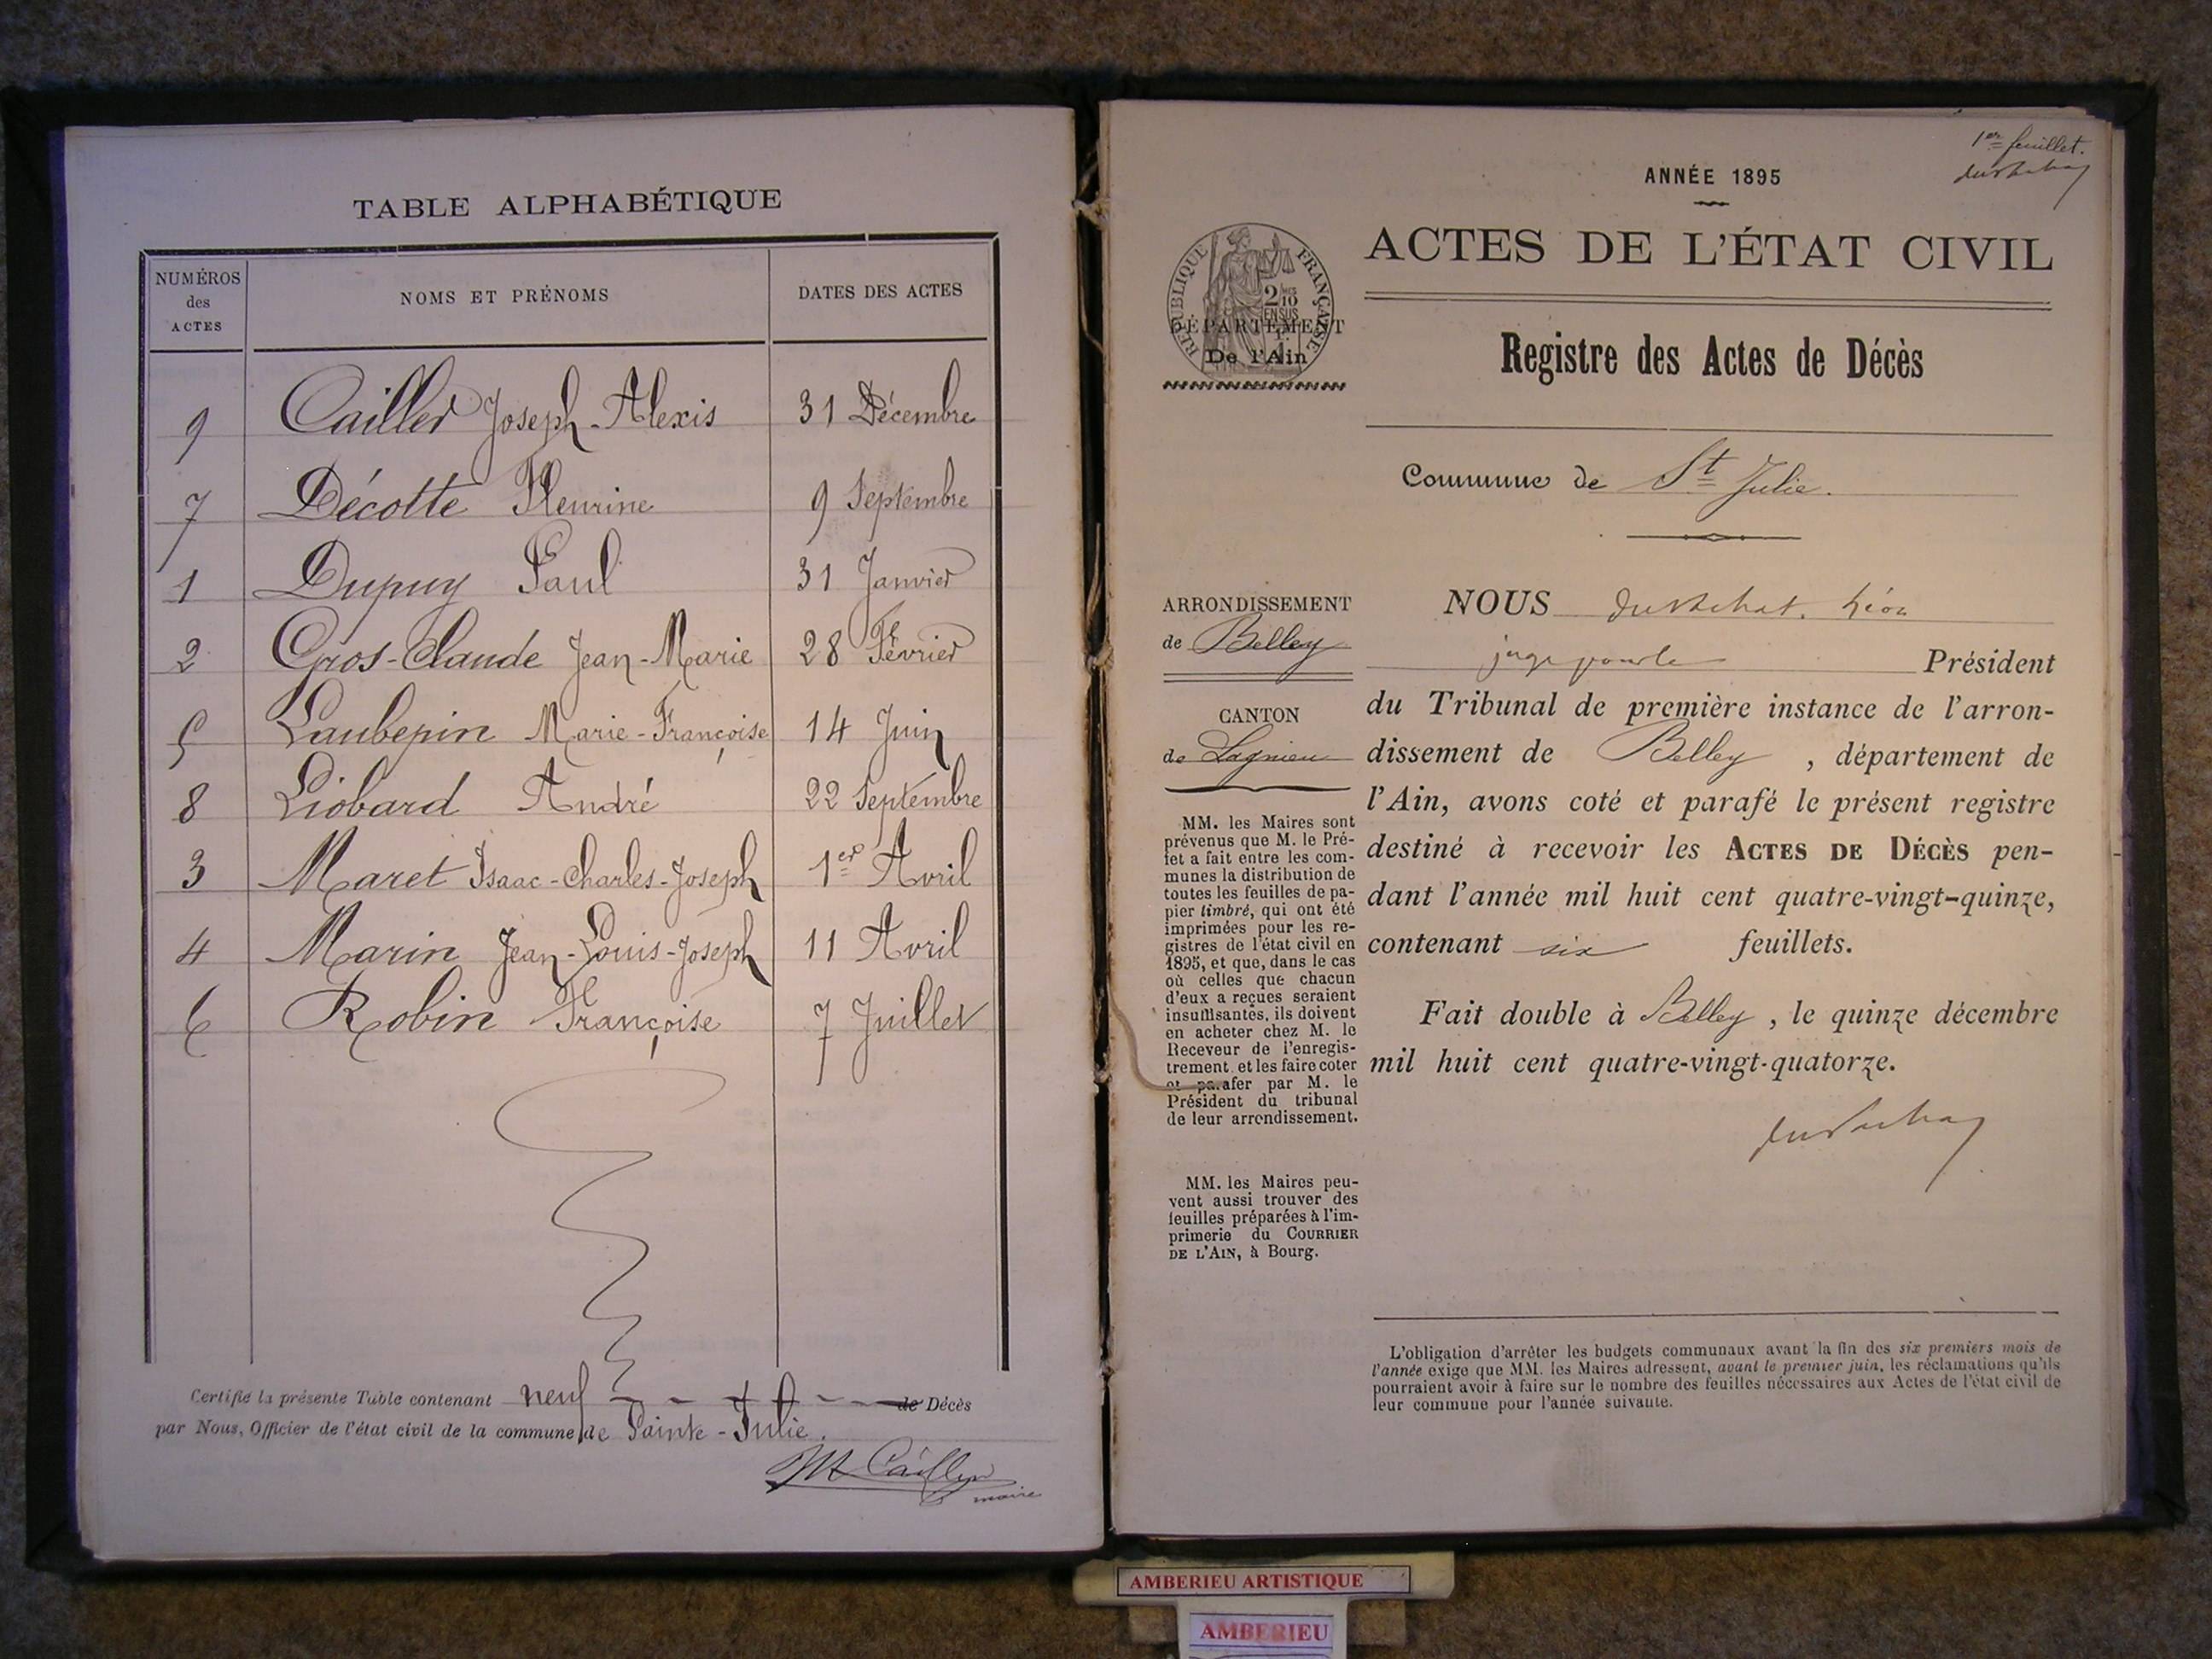 TABLE ALPHABÉTIQUE
NUMÉROS des ACTES | NOMS ET PRÉNOMS | DATES DES ACTES
9 Cailler Joseph-Alexis 31 Décembre
7 Décotte Fleurine 9 Septembre
1 Dupuy Paul 31 Janvier
2 Gros-Claude Jean-Marie 28 Février
5 Laubepin Marie-Françoise 14 Juin
8 Liobard André 22 Septembre
3 Maret Isaac-Charles-Joseph 1er Avril
4 Marin Jean-Louis-Joseph 11 Avril
6 Robin Françoise 7 Juillet
Certifie la présente Table contenant neuf de Décès
par Nous, Officier de l'état civil de la commune de Sainte-Julie.
maire
1er feuillet.
ANNÉE 1895
ACTES DE L'ÉTAT CIVIL
RÉPUBLIQUE FRANÇAISE
DÉPARTEMENT
De l'Ain
Registre des Actes de Décès
Commune de St Julie.
ARRONDISSEMENT
de Belley
CANTON
de Lagnieu
MM. les Maires sont
prévenus que M. le Pré-
fet a fait entre les com-
munes la distribution de
toutes les feuilles de pa-
pier timbré, qui ont été
imprimées pour les re-
gistres de l'état civil en
1895, et que, dans le cas
où celles que chacun
d'eux a reçues seraient
insuffisantes, ils doivent
en acheter chez M. le
Receveur de l'enregis-
trement et les faire coter
et parafer par M. le
Président du tribunal
de leur arrondissement.
MM. les Maires peu-
vent aussi trouver des
feuilles préparées à l'im-
primerie du COURRIER
DE L'AIN, à Bourg.
NOUS Léon
juge pour le Président
du Tribunal de première instance de l'arron-
dissement de Belley, département de
l'Ain, avons coté et parafé le présent registre
destiné à recevoir les ACTES DE DÉCÈS pen-
dant l'année mil huit cent quatre-vingt-quinze,
contenant six feuillets.
Fait double à Belley, le quinze décembre
mil huit cent quatre-vingt-quatorze.
L'obligation d'arrêter les budgets communaux avant la fin des six premiers mois de
l'année exige que MM. les Maires adressent, avant le premier juin, les réclamations qu'ils
pourraient avoir à faire sur le nombre des feuilles nécessaires aux Actes de l'état civil de
leur commune pour l'année suivante.
AMBERIEU ARTISTIQUE
AMBERIEU